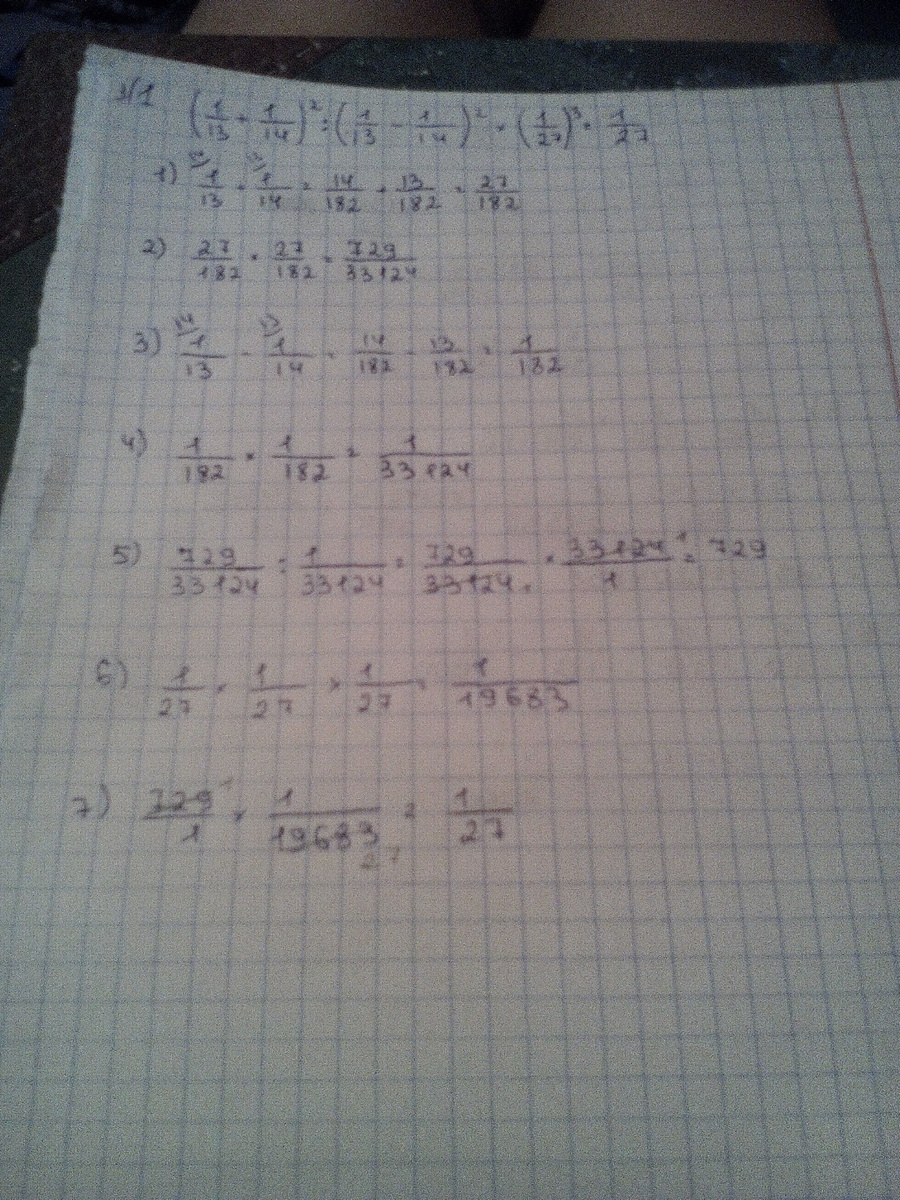 №1 (1/13 + 1/14)² : (1/13 - 1/14)² × (1/27)³ = 1/27
1) ¹⁴⁾1/13 + ¹³⁾1/14 = 14/182 + 13/182 = 27/182
2) 27/182 × 27/182 = 729/33124
3) ¹⁴⁾1/13 - ¹³⁾1/14 = 14/182 - 13/182 = 1/182
4) 1/182 × 1/182 = 1/33124
5) 729/33124 : 1/33124 = 729/33124 1 × 33124 1/1 = 729
6) 1/27 × 1/27 × 1/27 = 1/19683
7) 729 1/1 × 1/19683 27 = 1/27